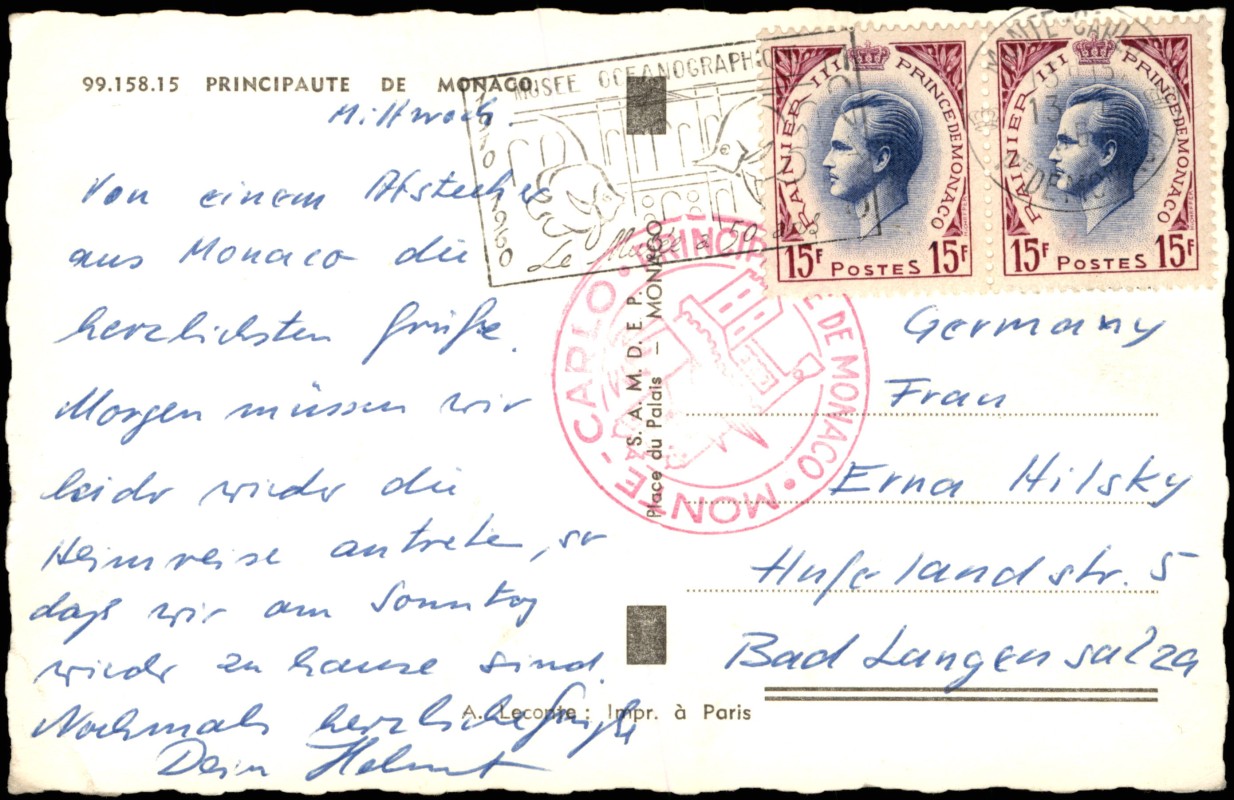 99.158.15 PRINCIPAUTE DE MONACO
Mittwoch.
Von einem Abstecher
aus Monaco die
herzlichsten Grüße.
Morgen müssen wir
leider wieder die
Heimreise antreten, so
daß wir am Sonntag
wieder zu hause sind.
Nochmals herzliche Grüße
Dein Helmut
MUSEE OCEANOGRAPHIQUE
1910 1960
Le Musée a 50 ans
RAINIER III PRINCE DE MONACO
15F POSTES 15F
RAINIER III PRINCE DE MONACO
15F POSTES 15F
MONTE-CARLO
PTE DE MONACO
MONTE-CARLO • PRINCIPAUTE DE MONACO •
S. A. M. D. E. P.
Place du Palais — MONACO
Germany
Frau
Erna Hilsky
Hufelandstr. 5
Bad Langensalza
A. Leconte : Impr. à Paris